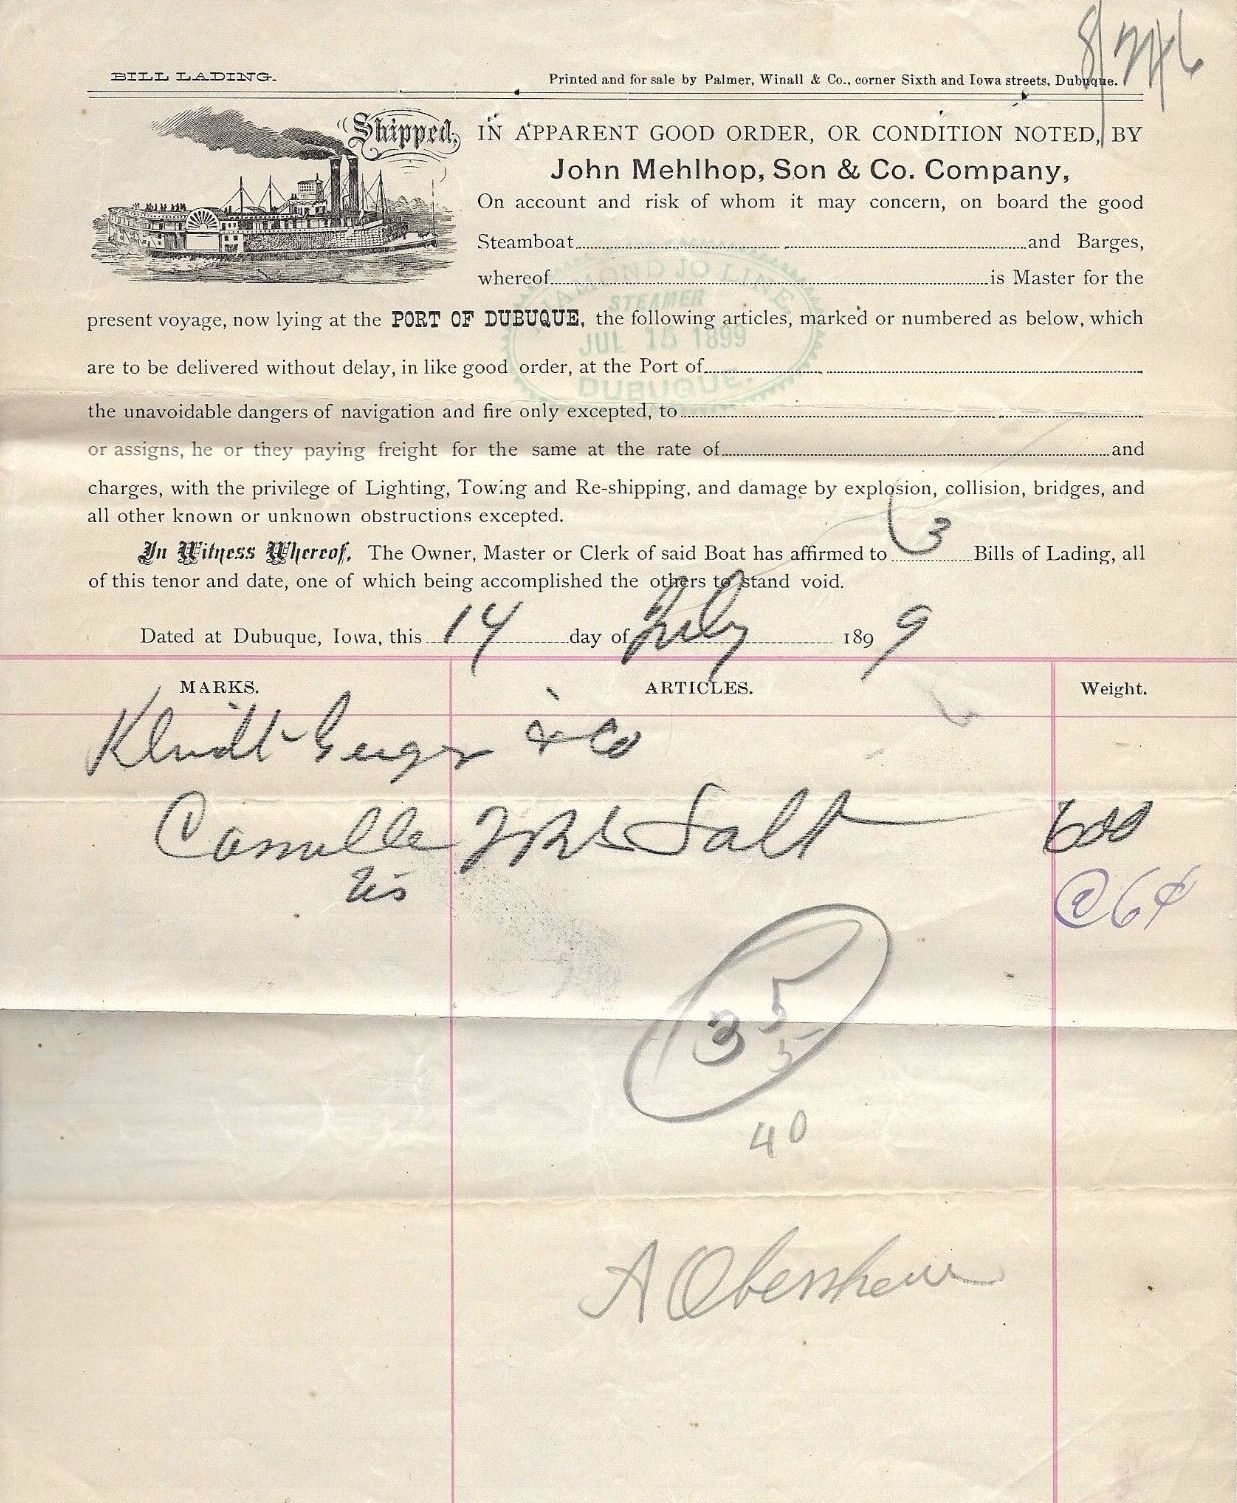 BILL LADING.
Printed and for sale by Palmer, Winall & Co., corner Sixth and Iowa streets, Dubuque.
Shipped, IN APPARENT GOOD ORDER, OR CONDITION NOTED, BY
John Mehlhop, Son & Co. Company,
On account and risk of whom it may concern, on board the good
Steamboat and Barges,
whereof is Master for the
present voyage, now lying at the PORT OF DUBUQUE, the following articles, marked or numbered as below, which
are to be delivered without delay, in like good order, at the Port of
the unavoidable dangers of navigation and fire only excepted, to
or assigns, he or they paying freight for the same at the rate of and
charges, with the privilege of Lighting, Towing and Re-shipping, and damage by explosion, collision, bridges, and
all other known or unknown obstructions excepted.
In Witness Whereof, The Owner, Master or Clerk of said Boat has affirmed to 3 Bills of Lading, all
of this tenor and date, one of which being accomplished the others to stand void.
Dated at Dubuque, Iowa, this 14 day of July 1899
DIAMOND JO LINE
STEAMER
JUL 15 1899
DUBUQUE.
MARKS. ARTICLES. Weight.
& Co
Salt 600
@ 6¢
35
5
40